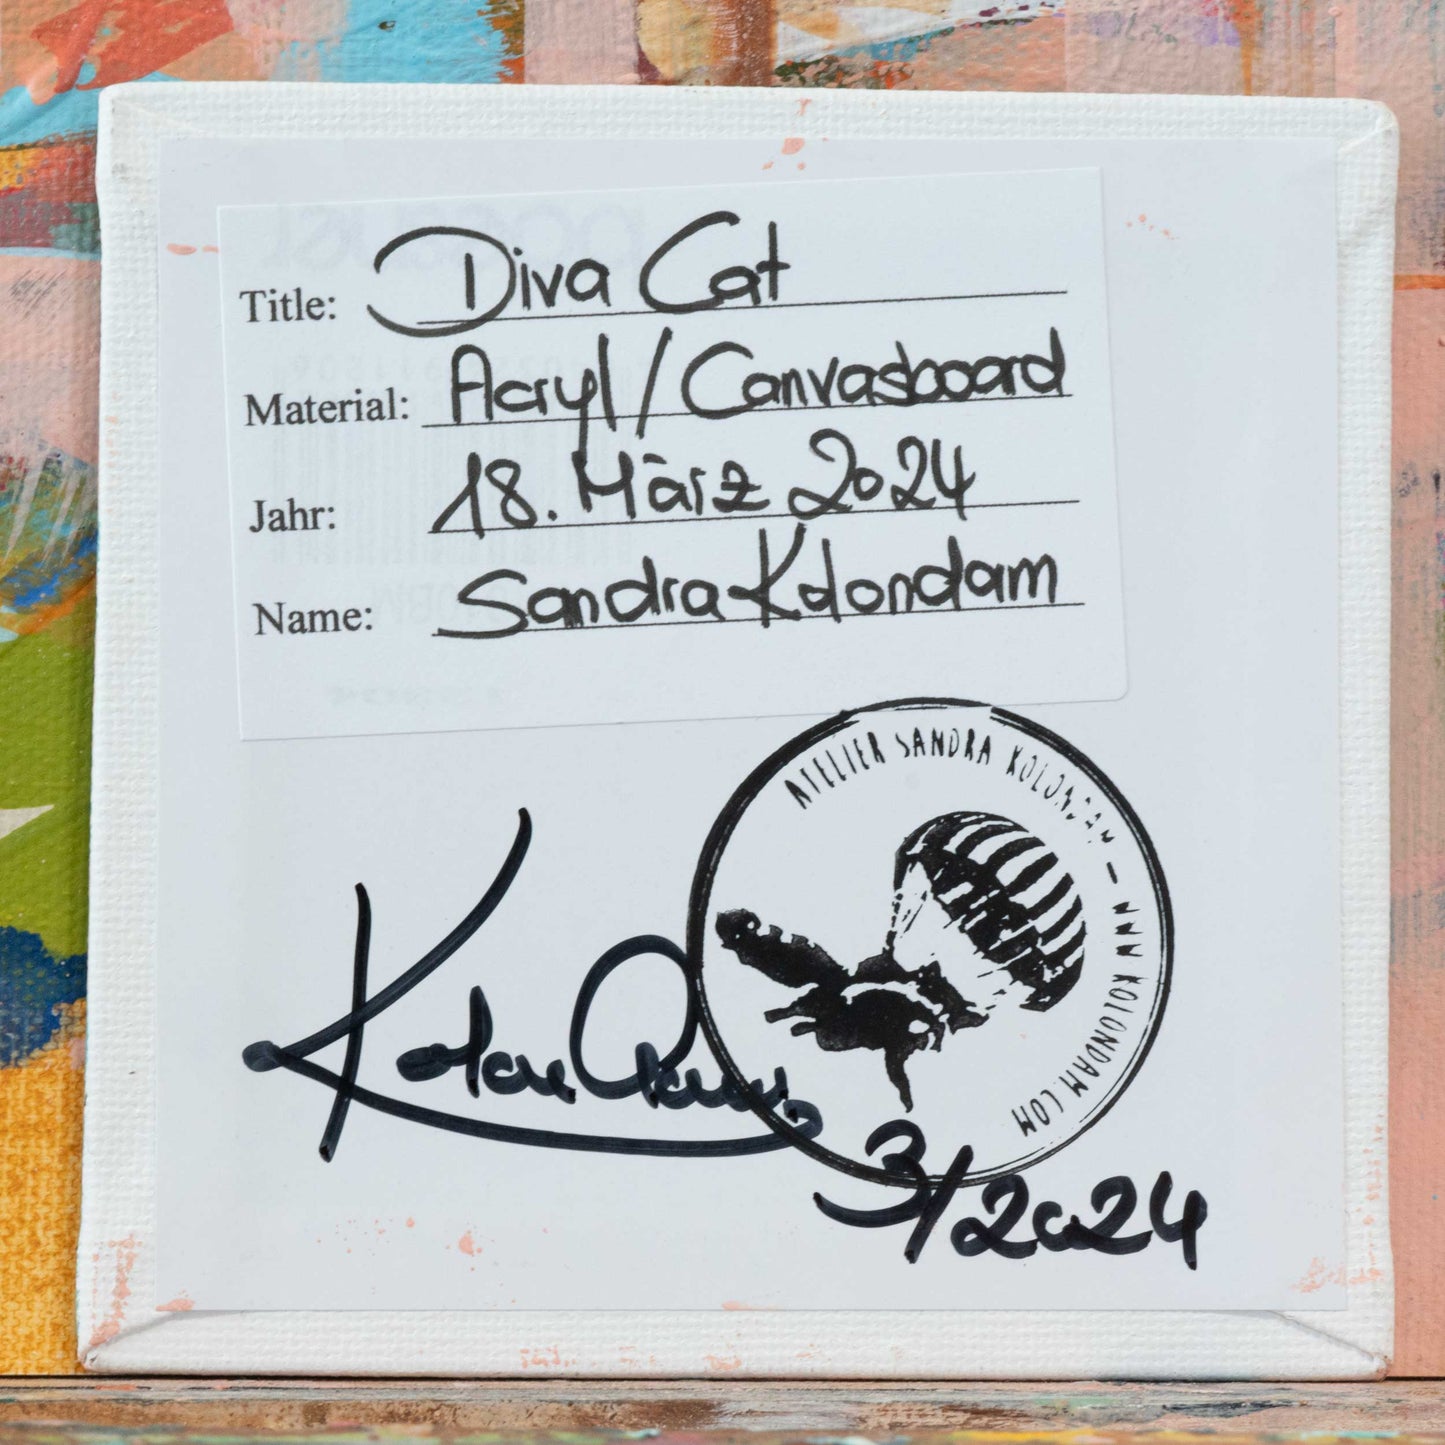 Title: Diva Cat
Material: Acryl / Canvasboard
Jahr: 18. März 2024
Name: Sandra Kolondam
ATELIER SANDRA KOLONDAM – WWW.KOLONDAM.COM
Kolondam
3/2024